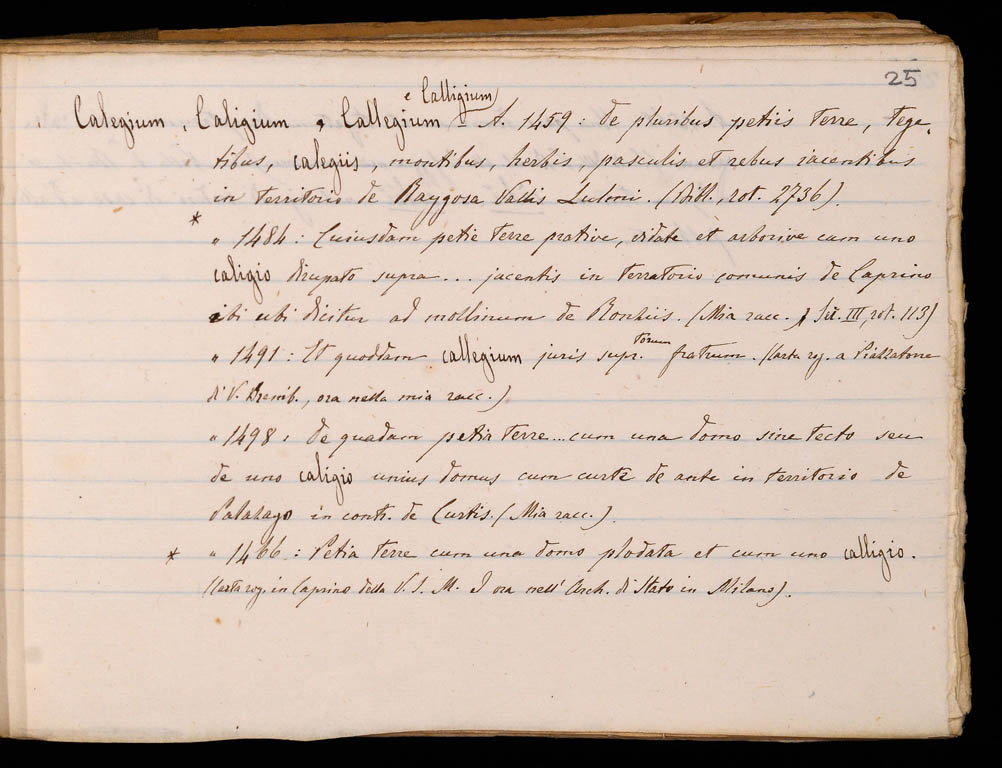 25
Calegium, Caligium, Callegium e Calligium - A. 1459: de pluribus petiis terre, tege-
tibus, calegiis, montibus, herbis, pasculis et rebus iacentibus
in territorio de Baygosa Vallis Lulmi. (Bibl., rot. 2736).
* " 1484: Cuiusdam petie terre prative, vidate et arborive cum uno
caligio dirupato supra ... jacentis in terratorio comunis de Caprino
ibi ubi dicitur ad mollinum de Ronchis. (Mia racc., Sez. III, rot. 113)
" 1491: Et quoddam callegium juris supr.torum fratrum. (Carta rog. a Piazzatorre
di V. Bremb., ora nella mia racc.)
" 1498: de quadam petia terre ... cum una domo sine tecto seu
de uno caligio unius domus cum curte de ante in territorio de
Palazago in contr. de Curtis. (Mia racc.).
* " 1466: Petia terre cum una domo plodata et cum uno calligio.
(Carta rog. in Caprino della V. S. M. I ora nell' Arch. di Stato in Milano).